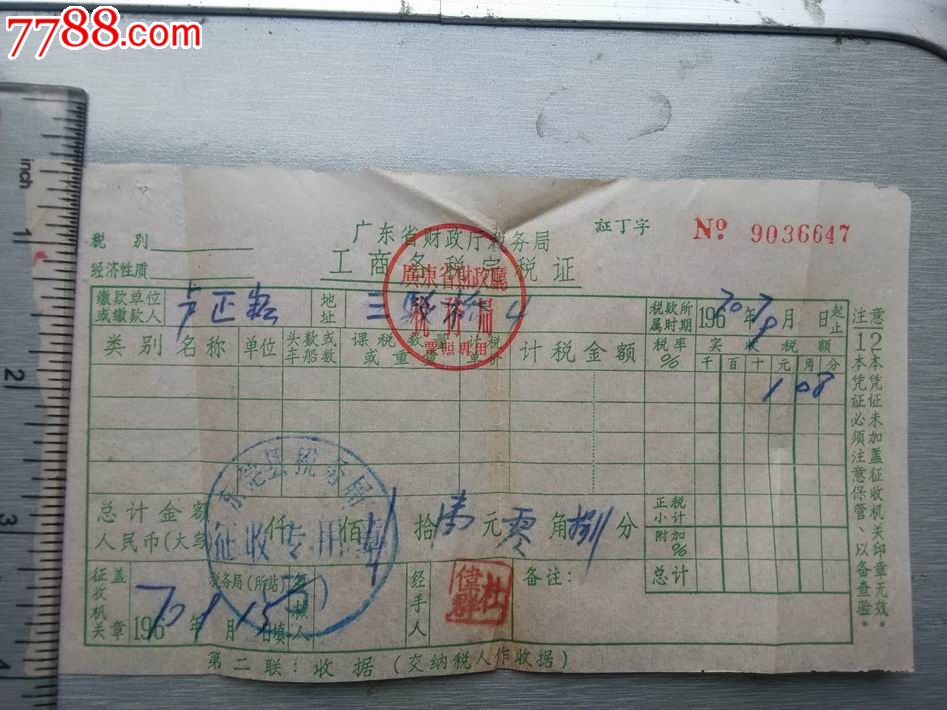 7788.com
inch
1
2
3
4
广东省财政厅税务局
証丁字
№ 9036647
工商各税完税证
税 别
经济性质
缴款单位
或缴款人
卢正
地
址
三
税款所
属时期
196 70年 月 日
起
止
类别名称
单位
头数或
车船数
课税数量
或重量
计税金额
税率
%
实收税额
千百十元角分
1 08
廣東省財政廳
税務局
票照專用
东莞县税务局
征收专用章
总计金额
人民币(大写) 仟 佰 拾 壹 元 零 角 捌 分
正税
小计
附加
%
总计
征收机关
盖章
税务局(所站)
196 70年 月 15日填
复核人
经手人
杜偉群
备注:
第二联:收据(交纳税人作收据)
注意
12
本凭证未加盖征收机关印章无效。
本凭证必须注意保管、以备查验。